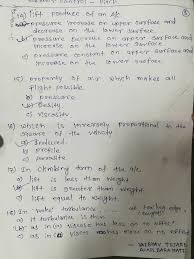 14) lift produce of an A/c
a) pressure increase on upper surface and decrease on the lower surface.
b) pressure decrease on upper surface and increase on the lower surface
c) pressure constant on upper surface and increase on lower surface.
15) property of air which makes all flight possible
a) pressure
b) Density
c) viscosity
16) which is inversely proportional to the square of the velocity
a) Induced
b) profile
c) parasite
17) In climbing turn of the A/c
a) lift is less than weight
b) lift is greater than weight.
c) lift equal to weight.
18) In wake turbulance
a) turbulance is thin
b) as in has no effect
c) as in
VAIBHAV
BARAMATI